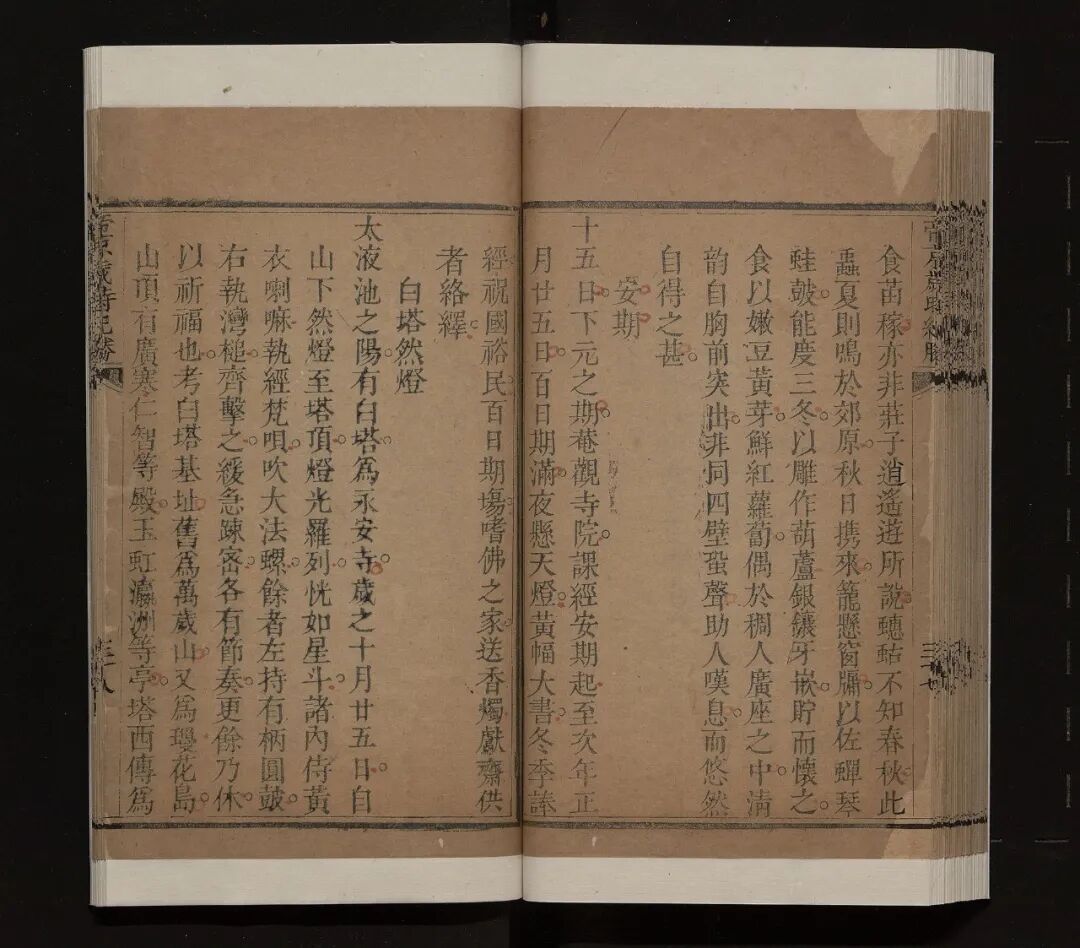 食苗稼亦非莊子逍遙遊所説蟪蛄不知春秋此
蟲夏則鳴於郊原秋日携來籠懸窗牖以佐蟬琴
蛙鼓能度三冬以雕作葫蘆銀鑲牙嵌貯而懷之
食以嫩豆黃芽鮮紅蘿蔔偶於稠人廣座之中清
韵自胸前突出非同四壁蛩聲助人嘆息而悠然
自得之甚
安期
十五日下元之期菴觀寺院課經安期起至次年正
月廿五日百日期滿夜懸天燈黃幅大書冬季諷
經祝國裕民百日期塲嗜佛之家送香燭獻齋供
者絡繹
白塔然燈
太液池之陽有白塔為永安寺歲之十月廿五日自
山下然燈至塔頂燈光羅列恍如星斗諸內侍黃
衣喇嘛執經梵唄吹大法螺餘者左持有柄圓鼓
右執灣槌齊擊之緩急踈宻各有節奏更餘乃休
以祈福也考白塔基址舊為萬歲山又為瓊花島
山頂有廣寒仁智等殿玉虹瀛洲等亭塔西傳為